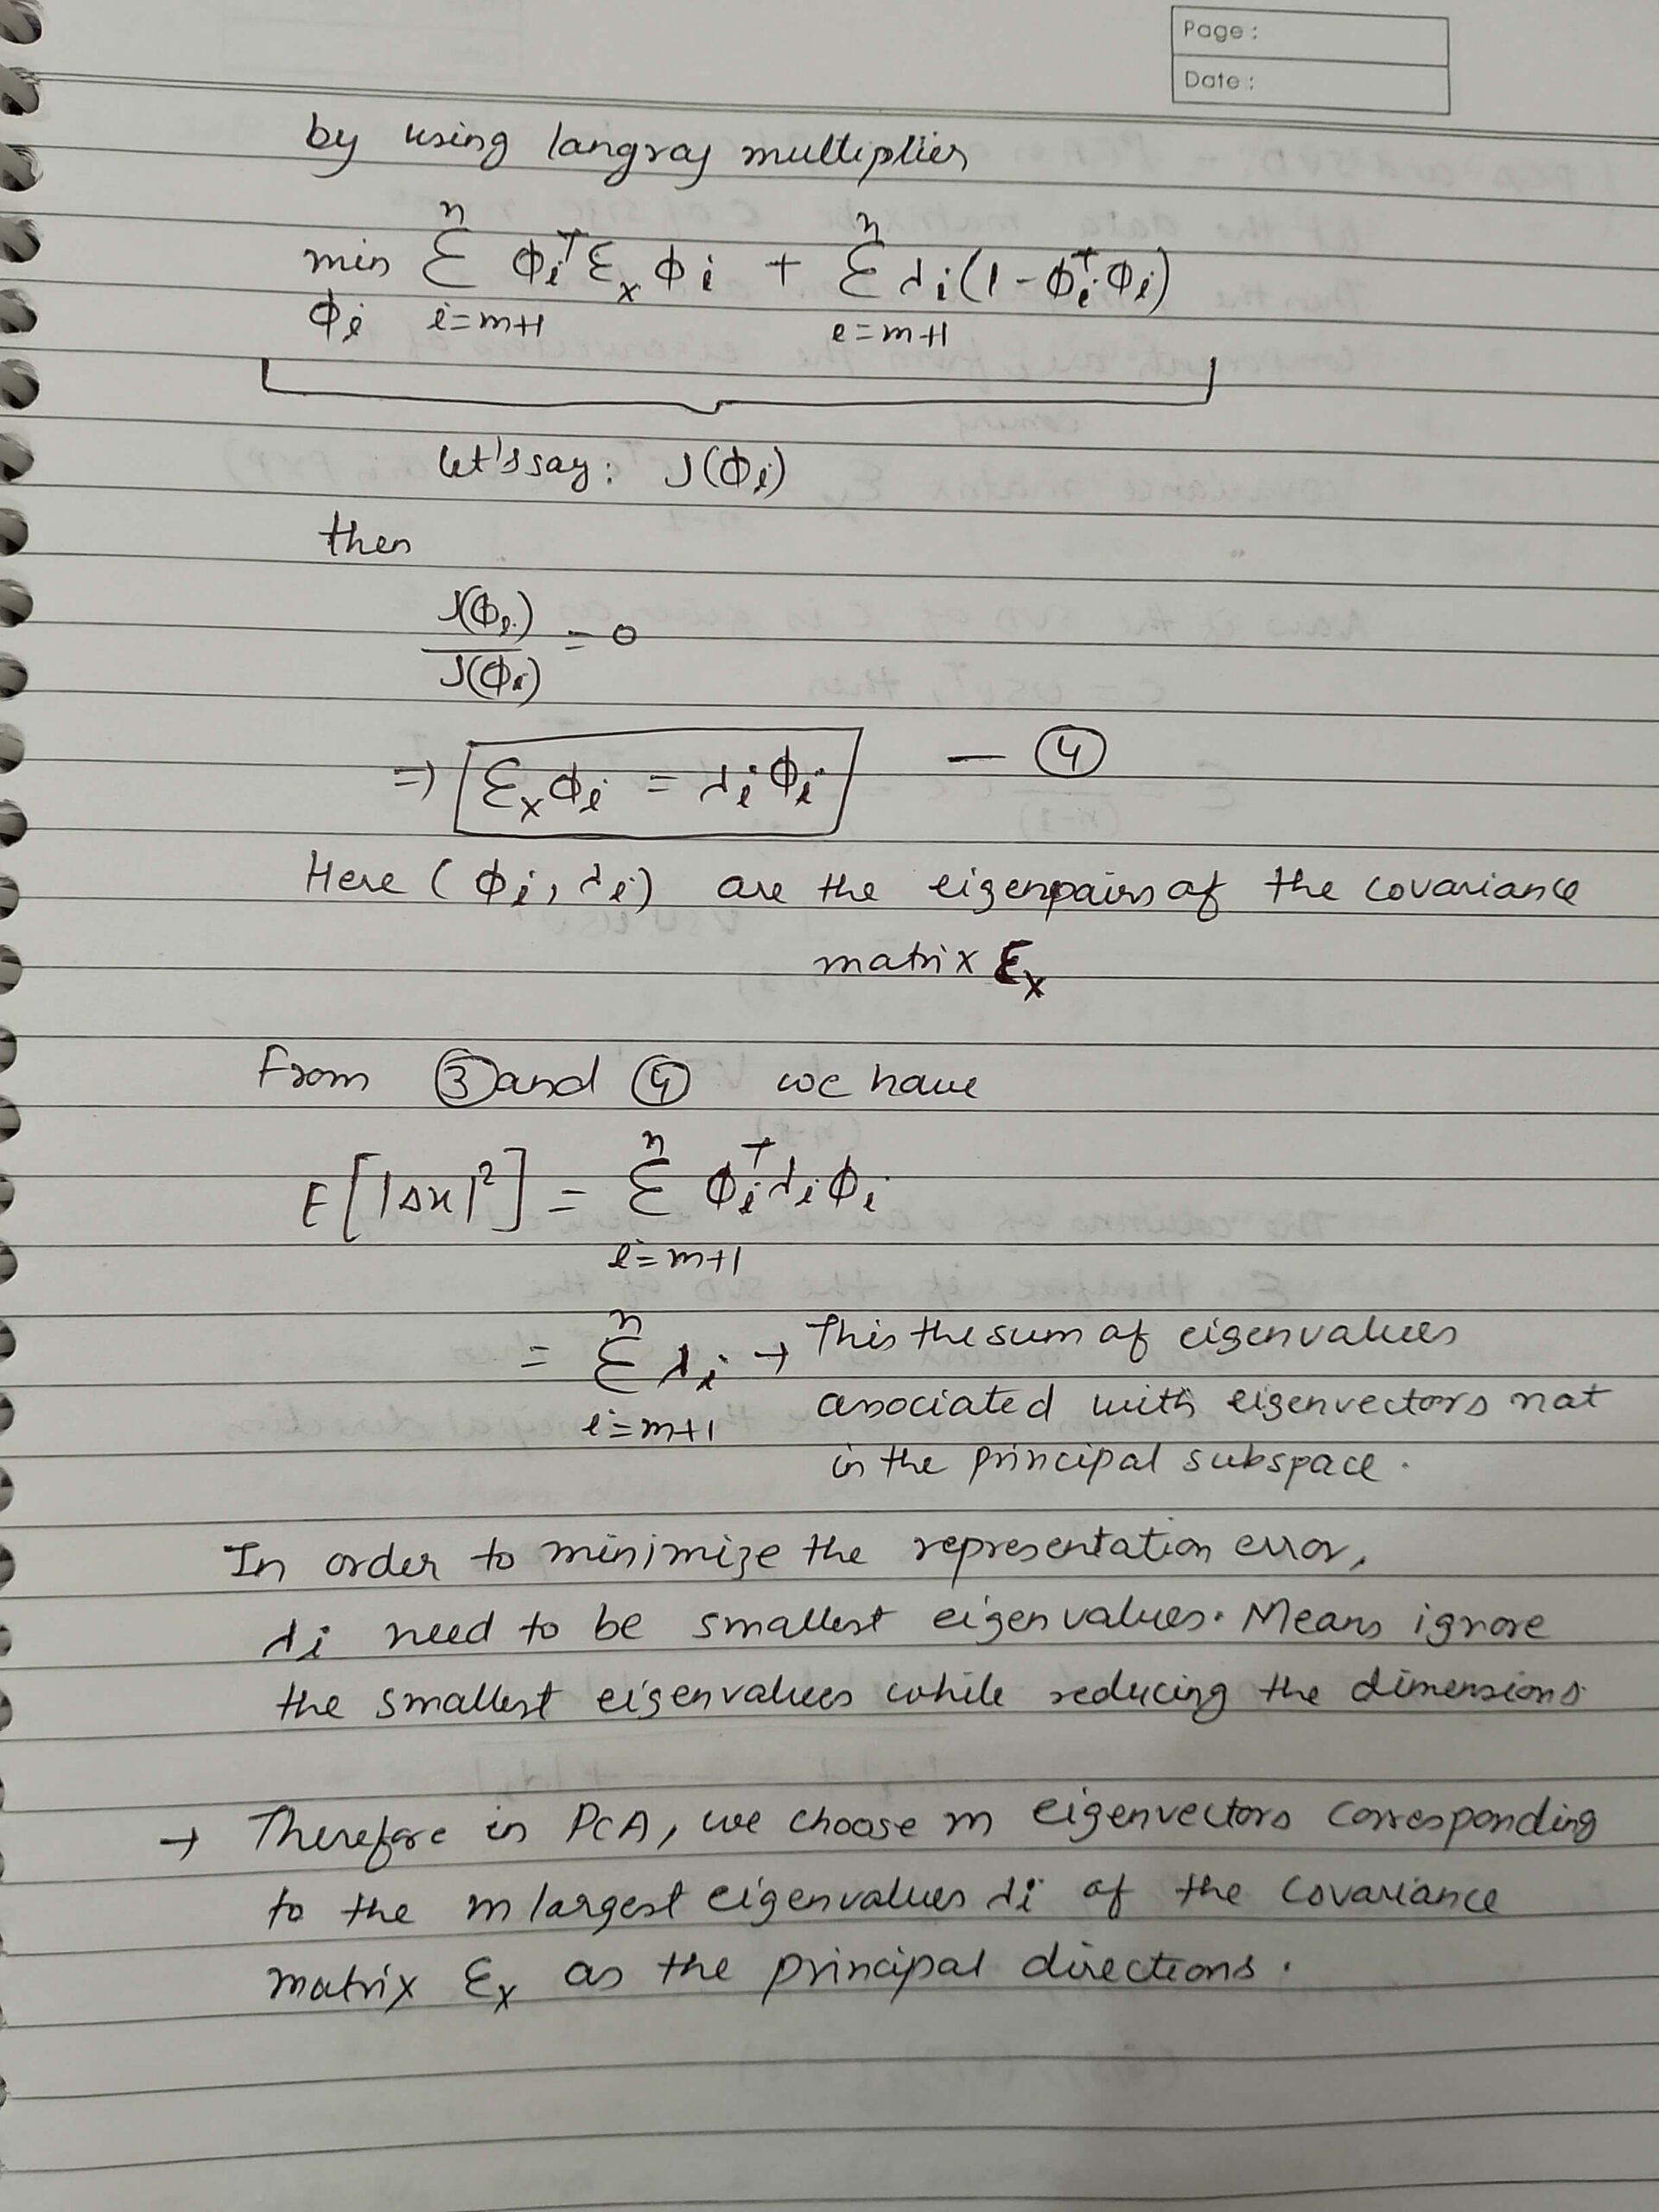 Page :
Date :
by using langraj multiplier
min_{ϕi} Σ_{i=m+1}^{n} ϕi^T Σx ϕi + Σ_{i=m+1}^{n} λi(1-ϕi^T ϕi)
let's say: J(ϕi)
then
J(ϕi)/J(ϕi) = 0
⇒ Σxϕi = λiϕi — ④
Here (ϕi, λi) are the eigenpairs of the covariance
matrix Σx
From ③ and ④ we have
E[|Δx|²] = Σ_{i=m+1}^{n} ϕi^T λi ϕi
= Σ_{i=m+1}^{n} λi → This the sum of eigenvalues
associated with eigenvectors not
in the principal subspace.
In order to minimize the representation error,
λi need to be smallest eigenvalues. Means ignore
the smallest eigenvalues while reducing the dimensions
→ Therefore in PCA, we choose m eigenvectors corresponding
to the m largest eigenvalues λi of the covariance
matrix Σx as the principal directions.